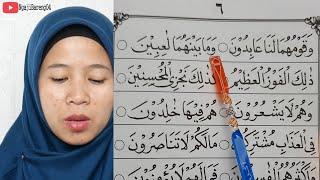 NgajiBareng04
٦
وَقَوْمُهُمَا لَنَا عَابِدُونَ ○ وَمَا بَيْنَهُمَا لَاعِبِيْنَ ○
ذٰلِكَ الْفَوْزُ الْعَظِيْمُ ○ كَذٰلِكَ نَجْزِي الْمُحْسِنِيْنَ ○
وَهُمْ لَا يَشْعُرُوْنَ ○ هُمْ فِيْهَا خٰلِدُوْنَ ○
فِي الْعَذَابِ مُشْتَرِكُوْنَ ○ مَالَكُمْ لَا تَنَاصَرُوْنَ ○